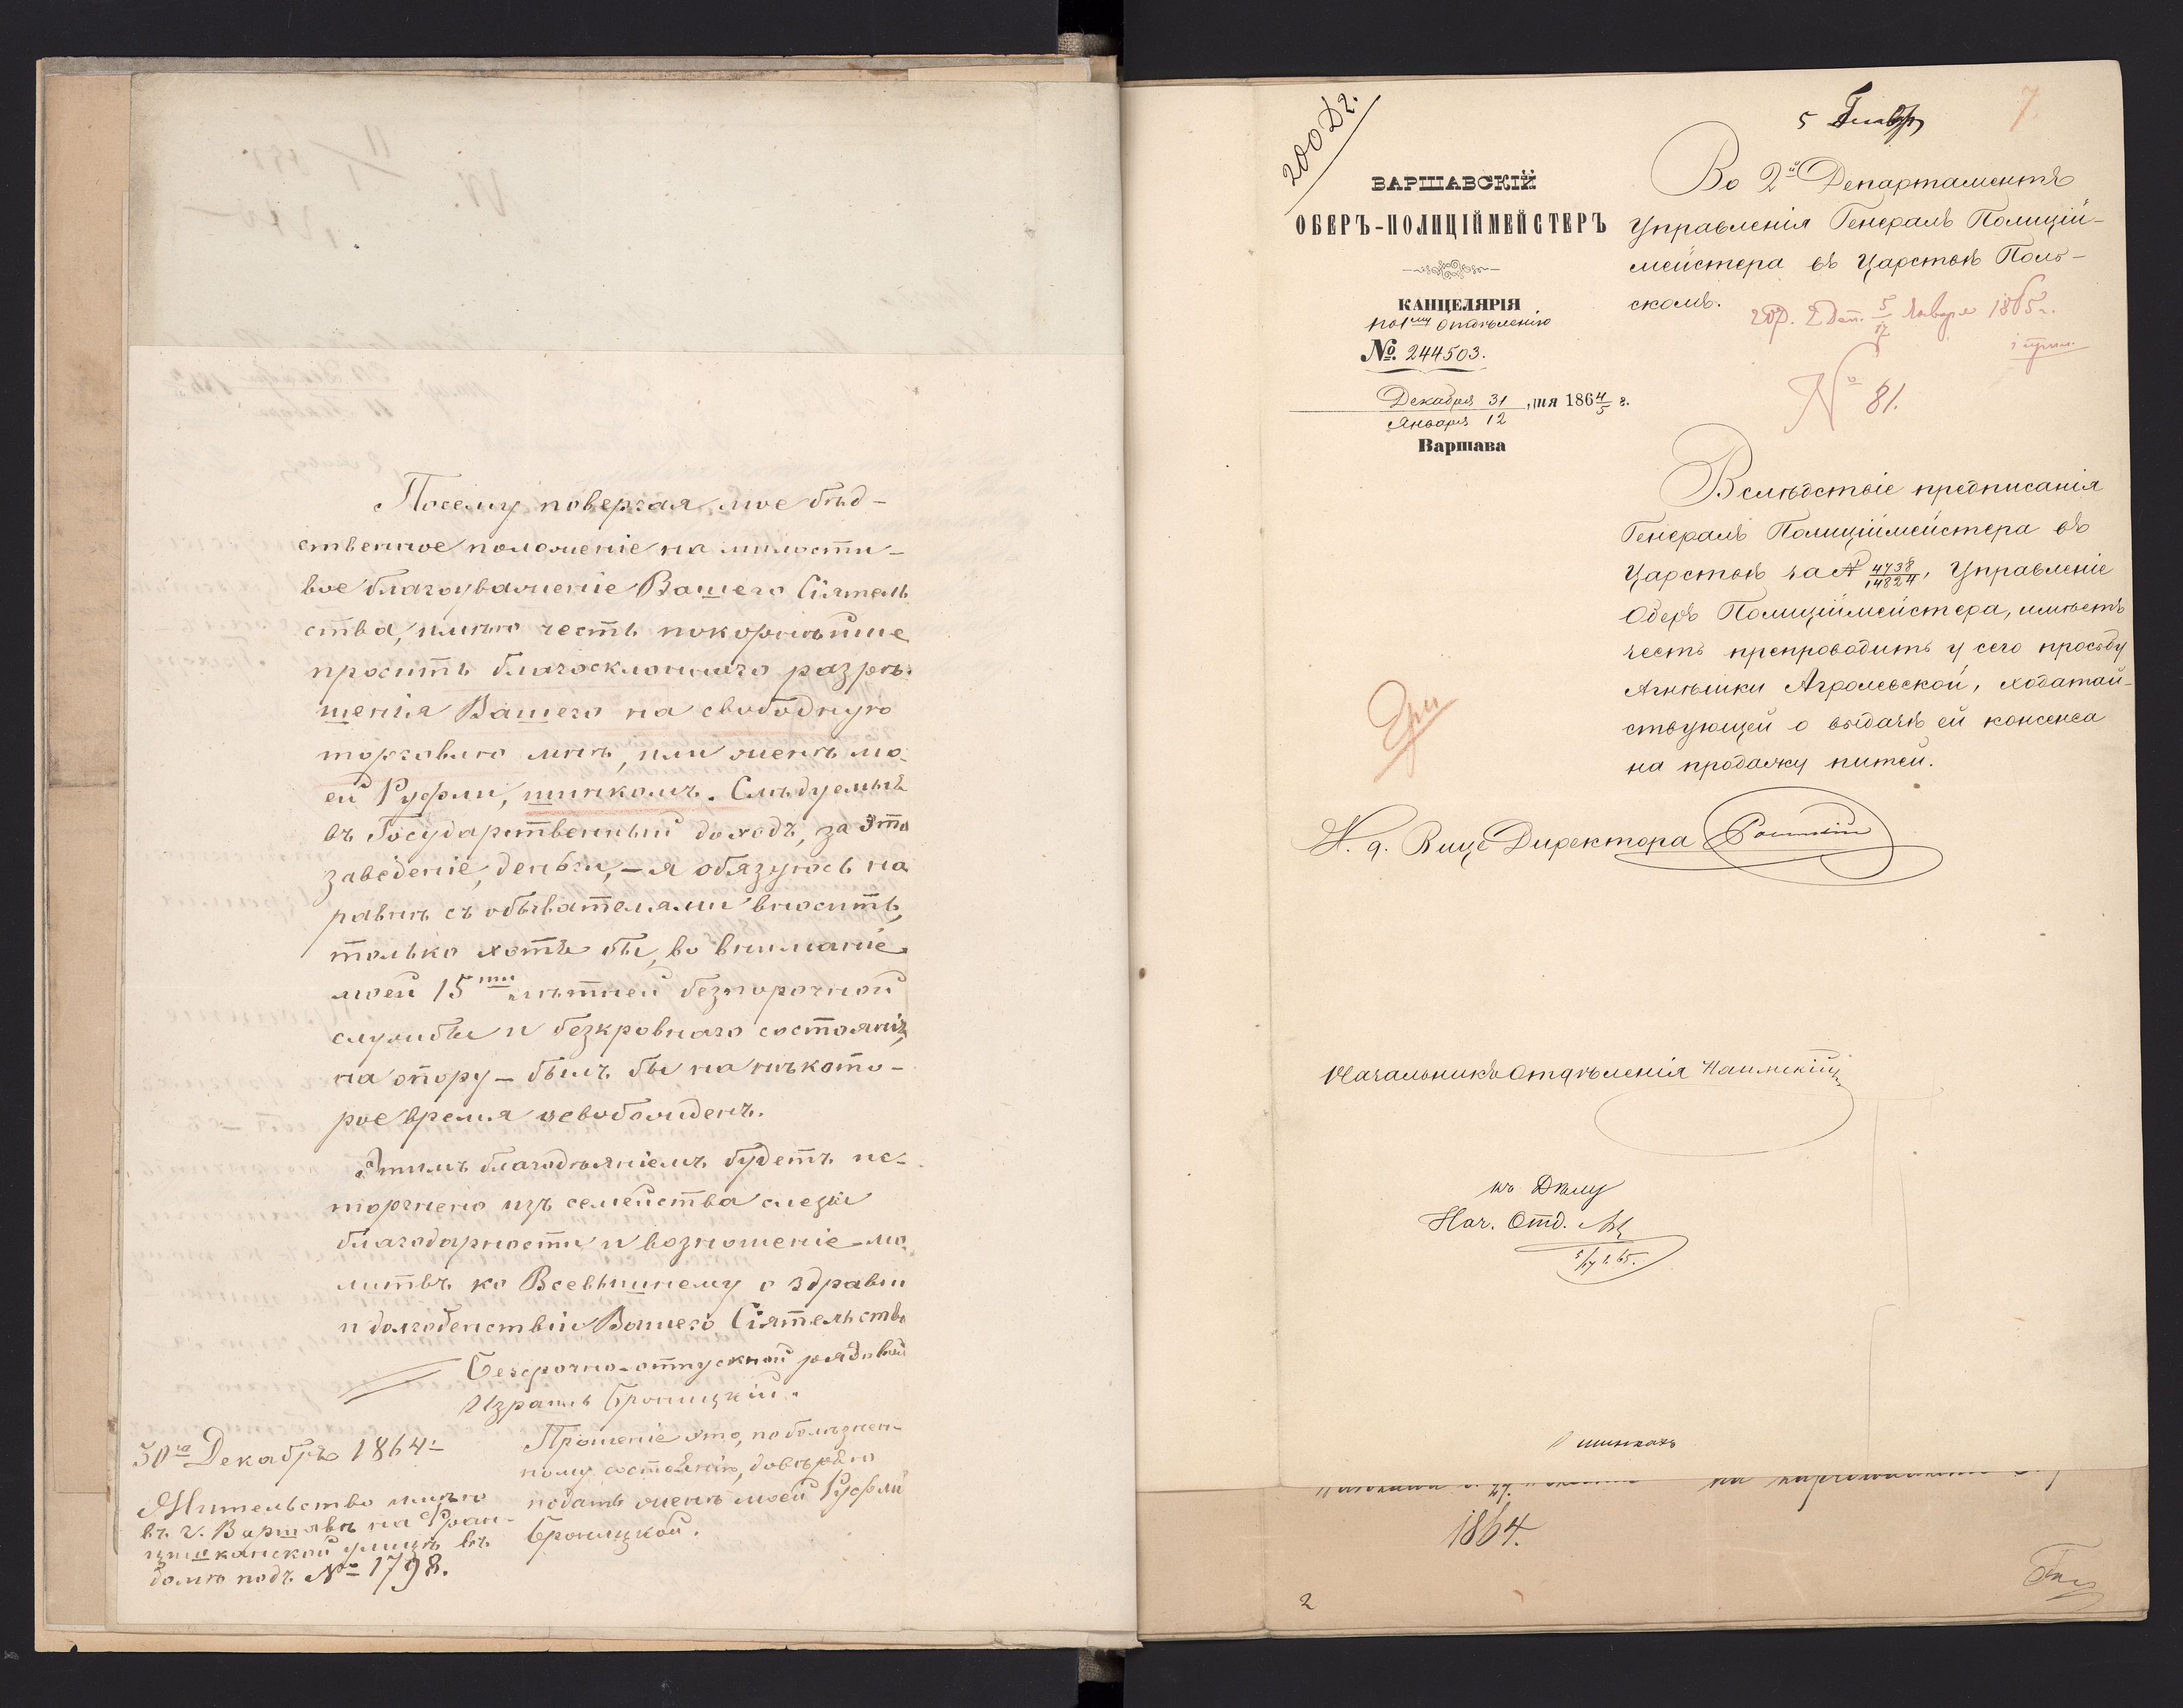 Посему повергая мое бѣд-
ственное положеніе на милости-
вое благоуваженіе Вашего Сіятель
ства, имѣю честь покорнѣйше
просить благосклоннаго разрѣ-
шенія Вашего на свободную
торговлю мнѣ, или женѣ мо-
ей Руфли, шинкомъ. Слѣдуемыя
въ Государственный доходъ, за это
заведеніе, деньги, – я обязуюсь на
равнѣ съ обывателями вносить,
только хотя бы, во вниманіе
моей 15ти лѣтней безпорочной
службы и безкровнаго состоянія,
на опору – былъ бы на нѣкото-
рое время освобожденъ.
Этимъ благодѣяніемъ будетъ ис-
торгнено изъ семейства слезы
благодарности и возношеніе мо-
литвъ ко Всевышнему о здравіи
и долгоденствіи Вашего Сіятельства
Безсрочно-отпускной рядовой
Израиль Броницкій.
30го Декабря 1864 г.
Жительство имѣю
въ г. Варшавѣ на Фран-
цишканской улицѣ въ
домѣ подъ № 1798.
Прошеніе это, по болѣзнен-
ному состоянію, довѣряю
подать женѣ моей Руфли
Броницкой.
200 Дг.
5 Январ
7.
ВАРШАВСКІЙ
ОБЕРЪ-ПОЛИЦІЙМЕЙСТЕРЪ
КАНЦЕЛЯРІЯ
по 1му Отдѣленію
№. 244503.
Декабря 31 дня 1864/5 г.
Января 12
Варшава
Во 2й Департаментъ
Управленія Генералъ Полицій-
мейстера въ Царствѣ Поль-
скомъ.
2 Деп. 5/17 Января 1865 г.
1 прил.
№ 81.
Вслѣдствіе предписанія
Генералъ Полиціймейстера въ
Царствѣ за № 4738/14824, Управленіе
Оберъ Полиціймейстера, имѣетъ
честь препроводить у сего просьбу
Агнѣшки Агролевской, ходатай-
ствующей о выдачѣ ей консенса
на продажу питей.
И. д. Вице Директора
Начальникъ Отдѣленія
къ Дѣлу
Нач. Отд.
5/17 1. 65.
О шинкахъ
1864.
2